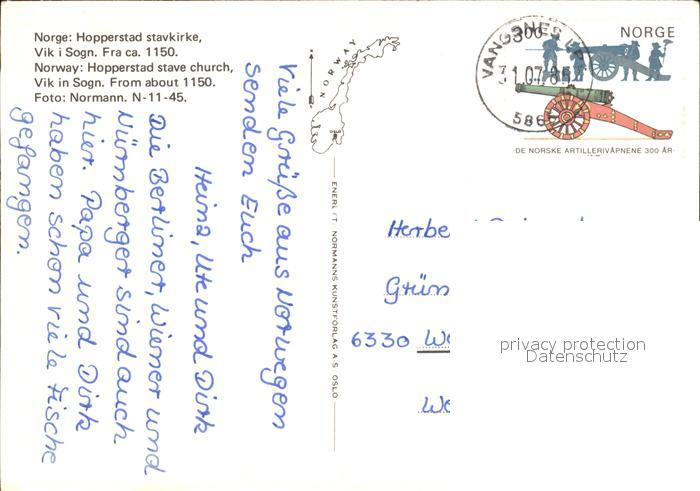 Norge: Hopperstad stavkirke,
Vik i Sogn. Fra ca. 1150.
Norway: Hopperstad stave church,
Vik in Sogn. From about 1150.
Foto: Normann. N-11-45.
NORWAY
OSLO
Viele Grüße aus Norwegen
senden Euch
Heinz, Ute und Dirk
Die Berliner, Wiener und
Nürnberger sind auch
hier. Papa und Dirk
haben schon viele Fische
gefangen.
ENERL IT NORMANNS KUNSTFORLAG A.S OSLO
300 NORGE
VANGSNES
31.07.85
586
DE NORSKE ARTILLERIVÅPNENE 300 ÅR
Herbe
Grün
6330 We
We
privacy protection
Datenschutz